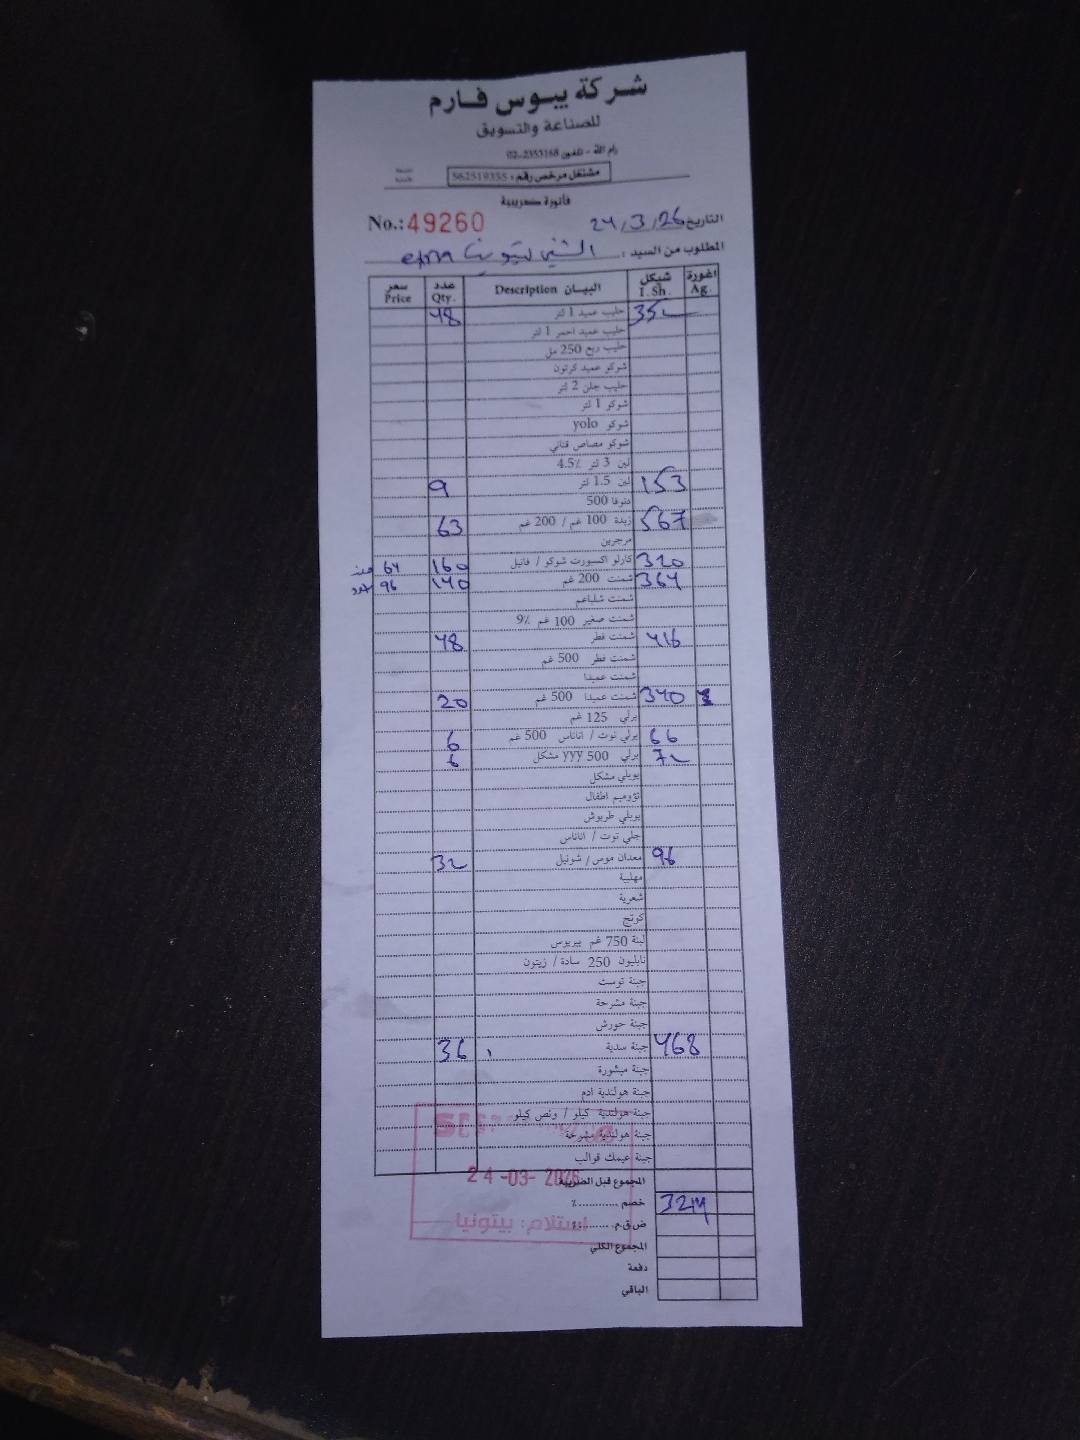 شركة يبوس فارم
للصناعة والتسويق
رام الله - تلفون 2353168-02
مشتغل مرخص رقم: 562519355
فاتورة ضريبية
No.: 49260
التاريخ 24/3/26
المطلوب من السيد: الشني بيتونيا extra
سعر Price عدد Qty. البيان Description شيكل I. Sh. اغورة Ag.
48 حليب عميد 1 لتر 352
حليب عميد احمر 1 لتر
حليب ربع 250 مل
شوكو عميد كرتون
حليب جلن 2 لتر
شوكو 1 لتر
شوكو yolo
شوكو مصاص قناني
لبن 3 لتر 4.5٪
9 لبن 1.5 لتر 153
دنوفا 500
63 زبدة 100 غم / 200 غم 567
مرجرين
64 160 كارلو اكسبورت شوكو / فانيل 320
96 140 شمنت 200 غم 364
شمنت شلباعم
شمنت صغير 100 غم 9٪
48 شمنت فطر 416
شمنت فطر 500 غم
شمنت عميدا
20 شمنت عميدا 500 غم 340
برلي 125 غم
6 برلي توت / اناناس 500 غم 66
6 برلي yyy 500 مشكل 72
يوبلي مشكل
تؤوميم اطفال
يوبلي طربوش
جلي توت / اناناس
32 معدان موس / شونيل 96
مهلبية
شعرية
كوتج
لبنة 750 غم بيريوس
نابليون 250 سادة / زيتون
جبنة توست
جبنة مشرحة
جبنة حورش
36 جبنة سدية 468
جبنة مبشورة
جبنة هولندية ادم
جبنة هولندية كيلو / ونص كيلو
جبنة هولندية مشرحة
جبنة عيمك قوالب
المجموع قبل الضريبة
24-03-2026
خصم ............٪ 3214
ض.ق.م. ..........٪
استلام: بيتونيا
المجموع الكلي
دفعة
الباقي